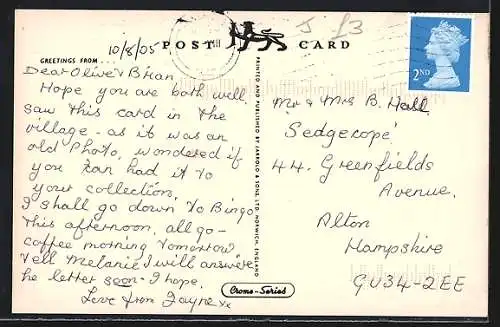 J £3
10/8/05
POST CARD
GREETINGS FROM ...
2ND
Dear Olive & Brian
Hope you are both well,
saw this card in the
village - as it was an
old Photo, wondered if
you can had it to
your collection.
I shall go down to Bingo
this afternoon, all go -
coffee morning tomorrow
Tell Melanie I will answere
he letter soon - I hope.
Love from Jayne xx
PRINTED AND PUBLISHED BY JARROLD & SONS LTD. NORWICH, ENGLAND
Mr & Mrs B. Hall
'Sedgecope'
44. Greenfields
Avenue.
Alton
Hampshire
GU34-2EE
Croma-Series